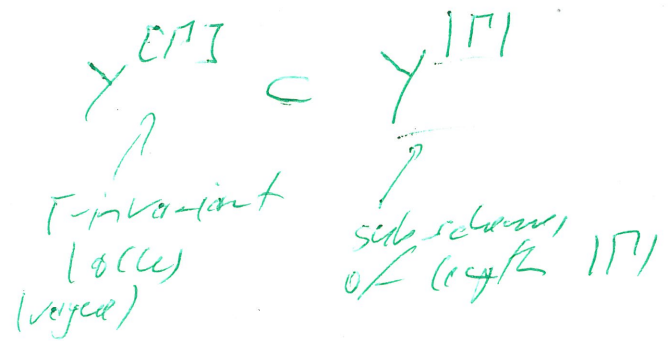 Y^{[Γ]} ⊂ Y^{|Γ|}
Γ-invariant
locus
(vague)
subschemes
of length |Γ|